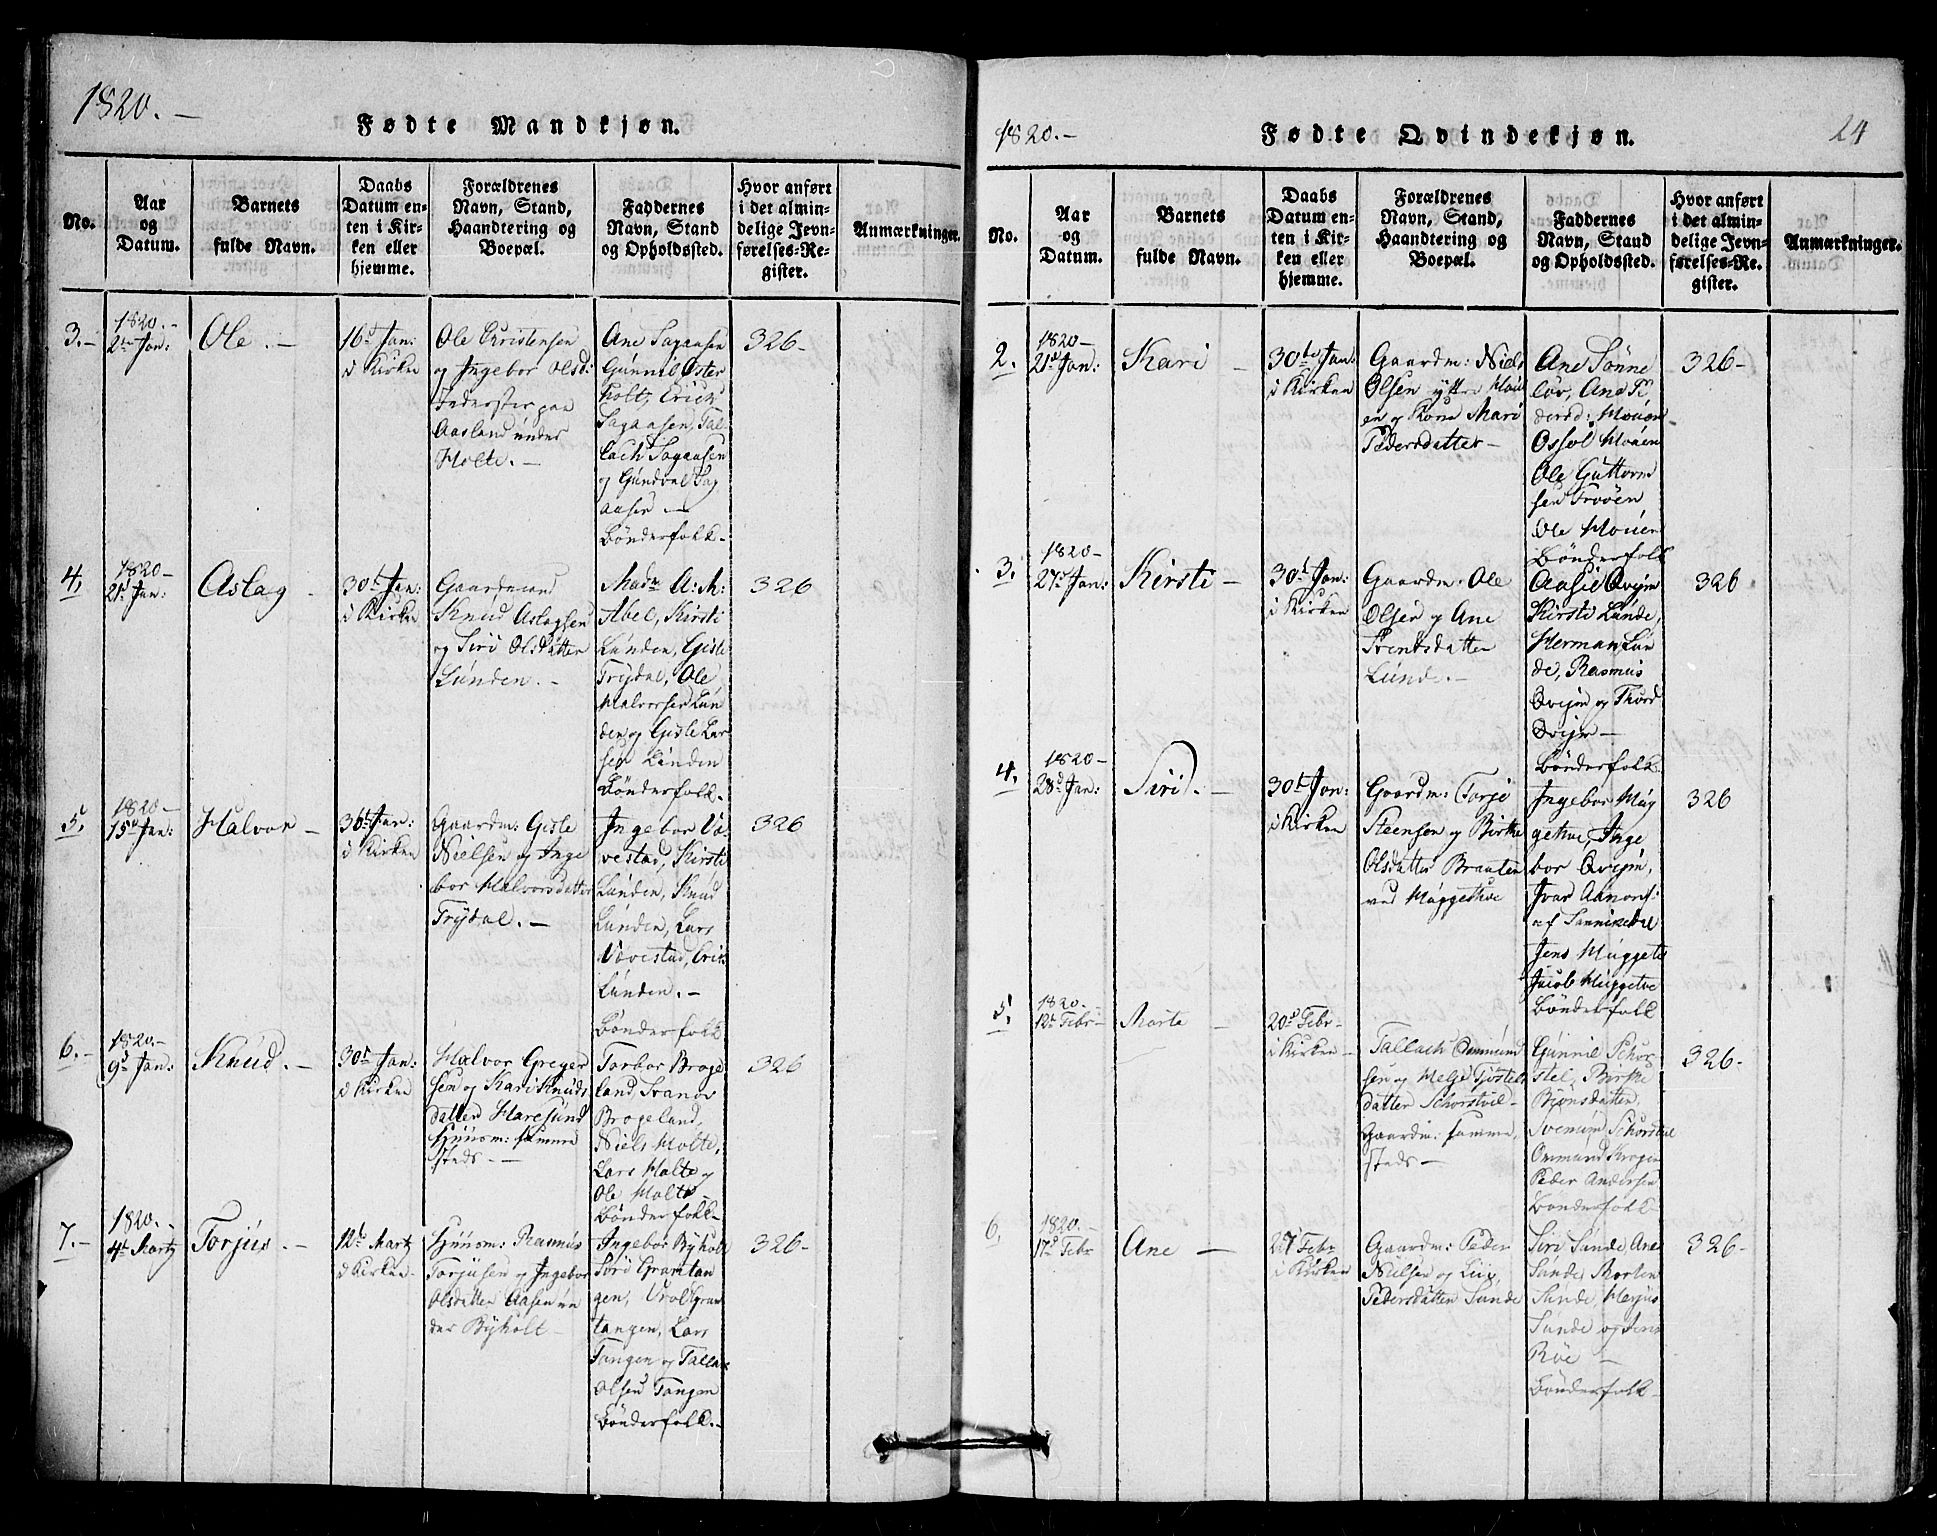 1820.—
Fødte Mandkjøn.
No.
Aar
og
Datum.
Barnets
fulde Navn.
Daabs
Datum en-
ten i Kir-
ken eller
hjemme.
Forældrenes
Navn, Stand,
Haandtering og
Boepæl.
Faddernes
Navn, Stand
og Opholdssted.
Hvor anført
i det almin-
delige Jevn-
førelses-Re-
gister.
Anmærkninger.
3.-
1820.-
2den Jan:
Ole.—
16d Jan:
i Kirken
Ole Christensen
og Ingebor Olsd:
Inderster paa
Aasland under
Holte.—
Ane Sagaasen
Gunnil Oster
holt, Erich
Sagaasen, Tal-
lach Sagaasen
og Gundval Sag
aasen —
Bønderfolk.-
326-
4.
1820-
21d Jan:
Aslag
30t Jan:
i Kirken
Gaardmand
Knud Aslagsen
og Siri Olsdatter
Lunden.—
Madm A:M:
Abel, Kirsti
Lunden, Gisle
Trydal, Ole
Halvorsen Lun
den og Gisle Lar
sen Lunden
Bønderfolk.
326
5.
1820-
15d Jan:
Halvor —
30t Jan:
i Kirken
Gaardm: Gisle
Nielsen og Inge
bor Halvorsdatter
Trydal.—
Ingebor Vo-
vestad, Kirsti
Lunden, Knud
Lunden, Lars
Vovestad, Erik
Lunden.—
Bønderfolk
326
6.-
1820.-
9d Jan:
Knud.—
30t Jan:
i Kirken
Halvor Greger
sen og Kari Knuds
datter Haresund
Huusm: samme
steds.—
Torbor Broge
land, Svanov
Brogeland,
Niels Holte,
Lars Holte og
Ole Holte-
Bønderfolk-
326
7.-
1820.-
4d Martz
Torjus.—
12d Martz
i Kirken-
Huusm: Rasmus
Torjusen og Ingebor
Olsdatter Aasen un
der Byholt —
Ingebor Byholt
Siri Gramtan
gen, Vrol Gram
tangen, Lars
Tangen og Tallac
Olsen Tangen
Bønderfolk.-
326-
1820.-
Fødte Qvindekjøn.
24
No.
Aar
og
Datum.
Barnets
fulde Navn.
Daabs
Datum en-
ten i Kir-
ken eller
hjemme.
Forældrenes
Navn, Stand,
Haandtering og
Boepæl.
Faddernes
Navn, Stand
og Opholdssted.
Hvor anført
i det almin-
delige Jevn-
førelses-Re-
gister.
Anmærkninger.
2.
1820-
21d Jan:
Kari —
30te Jan:
i Kirken
Gaardm: Niels
Olsen yttre Mou
en og Kone Mari
Pedersdatter —
Ane Sønne
løv, Ane P
dersd: Mouen
Ossol Mouen
Ole Guttorm
sen Froøen
Ole Mouen
Bønderfolk
326-
3.
1820-
27d Jan:
Kirsti —
30t Jan:
i Kirken
Gaardm: Ole
Olsen og Ane
Trondsdatter
Lunde.—
Aasie Qvejm
Kirsti Lunde,
Herman Lun
de, Rasmus
Qvejm og Thord
Qvejm —
Bønderfolk
326
4.
1820-
28d Jan:
Siri.—
30t Jan:
i Kirken
Gaardm: Torje
Steensen og Birthe
Olsdatter Brauten
ved Muggethve
Ingebor Mug
gethve, Inge
bor Qvejm,
Ivar Aanons:
af Sannikedal
Jens Muggetv
Jacob Muggetve
Bønderfolk
326
5.
1820.
12d Febr-
Marte —
20d Febr-
i Kirken-
Tallach Ommund
sen og Helje Tjøstels
datter Schorstøl-
Gaardm: samme
steds —
Gunnil Schor
støl, Birthe
Bjonsdatter,
Svenum Schorstøl
Ommund Krogen
Peder Andersen
Bønderfolk-
326-
6.
1820.-
17d Febr
Ane —
27d Febr
i Kirken
Gaardm: Peder
Nielsen og Liv
Pedersdatter Sunde
Siri Sunde, Ane
Sunde, Morten
Sunde, Herjus
Sunde og Jens
Røe —
Bønderfolk-
326-